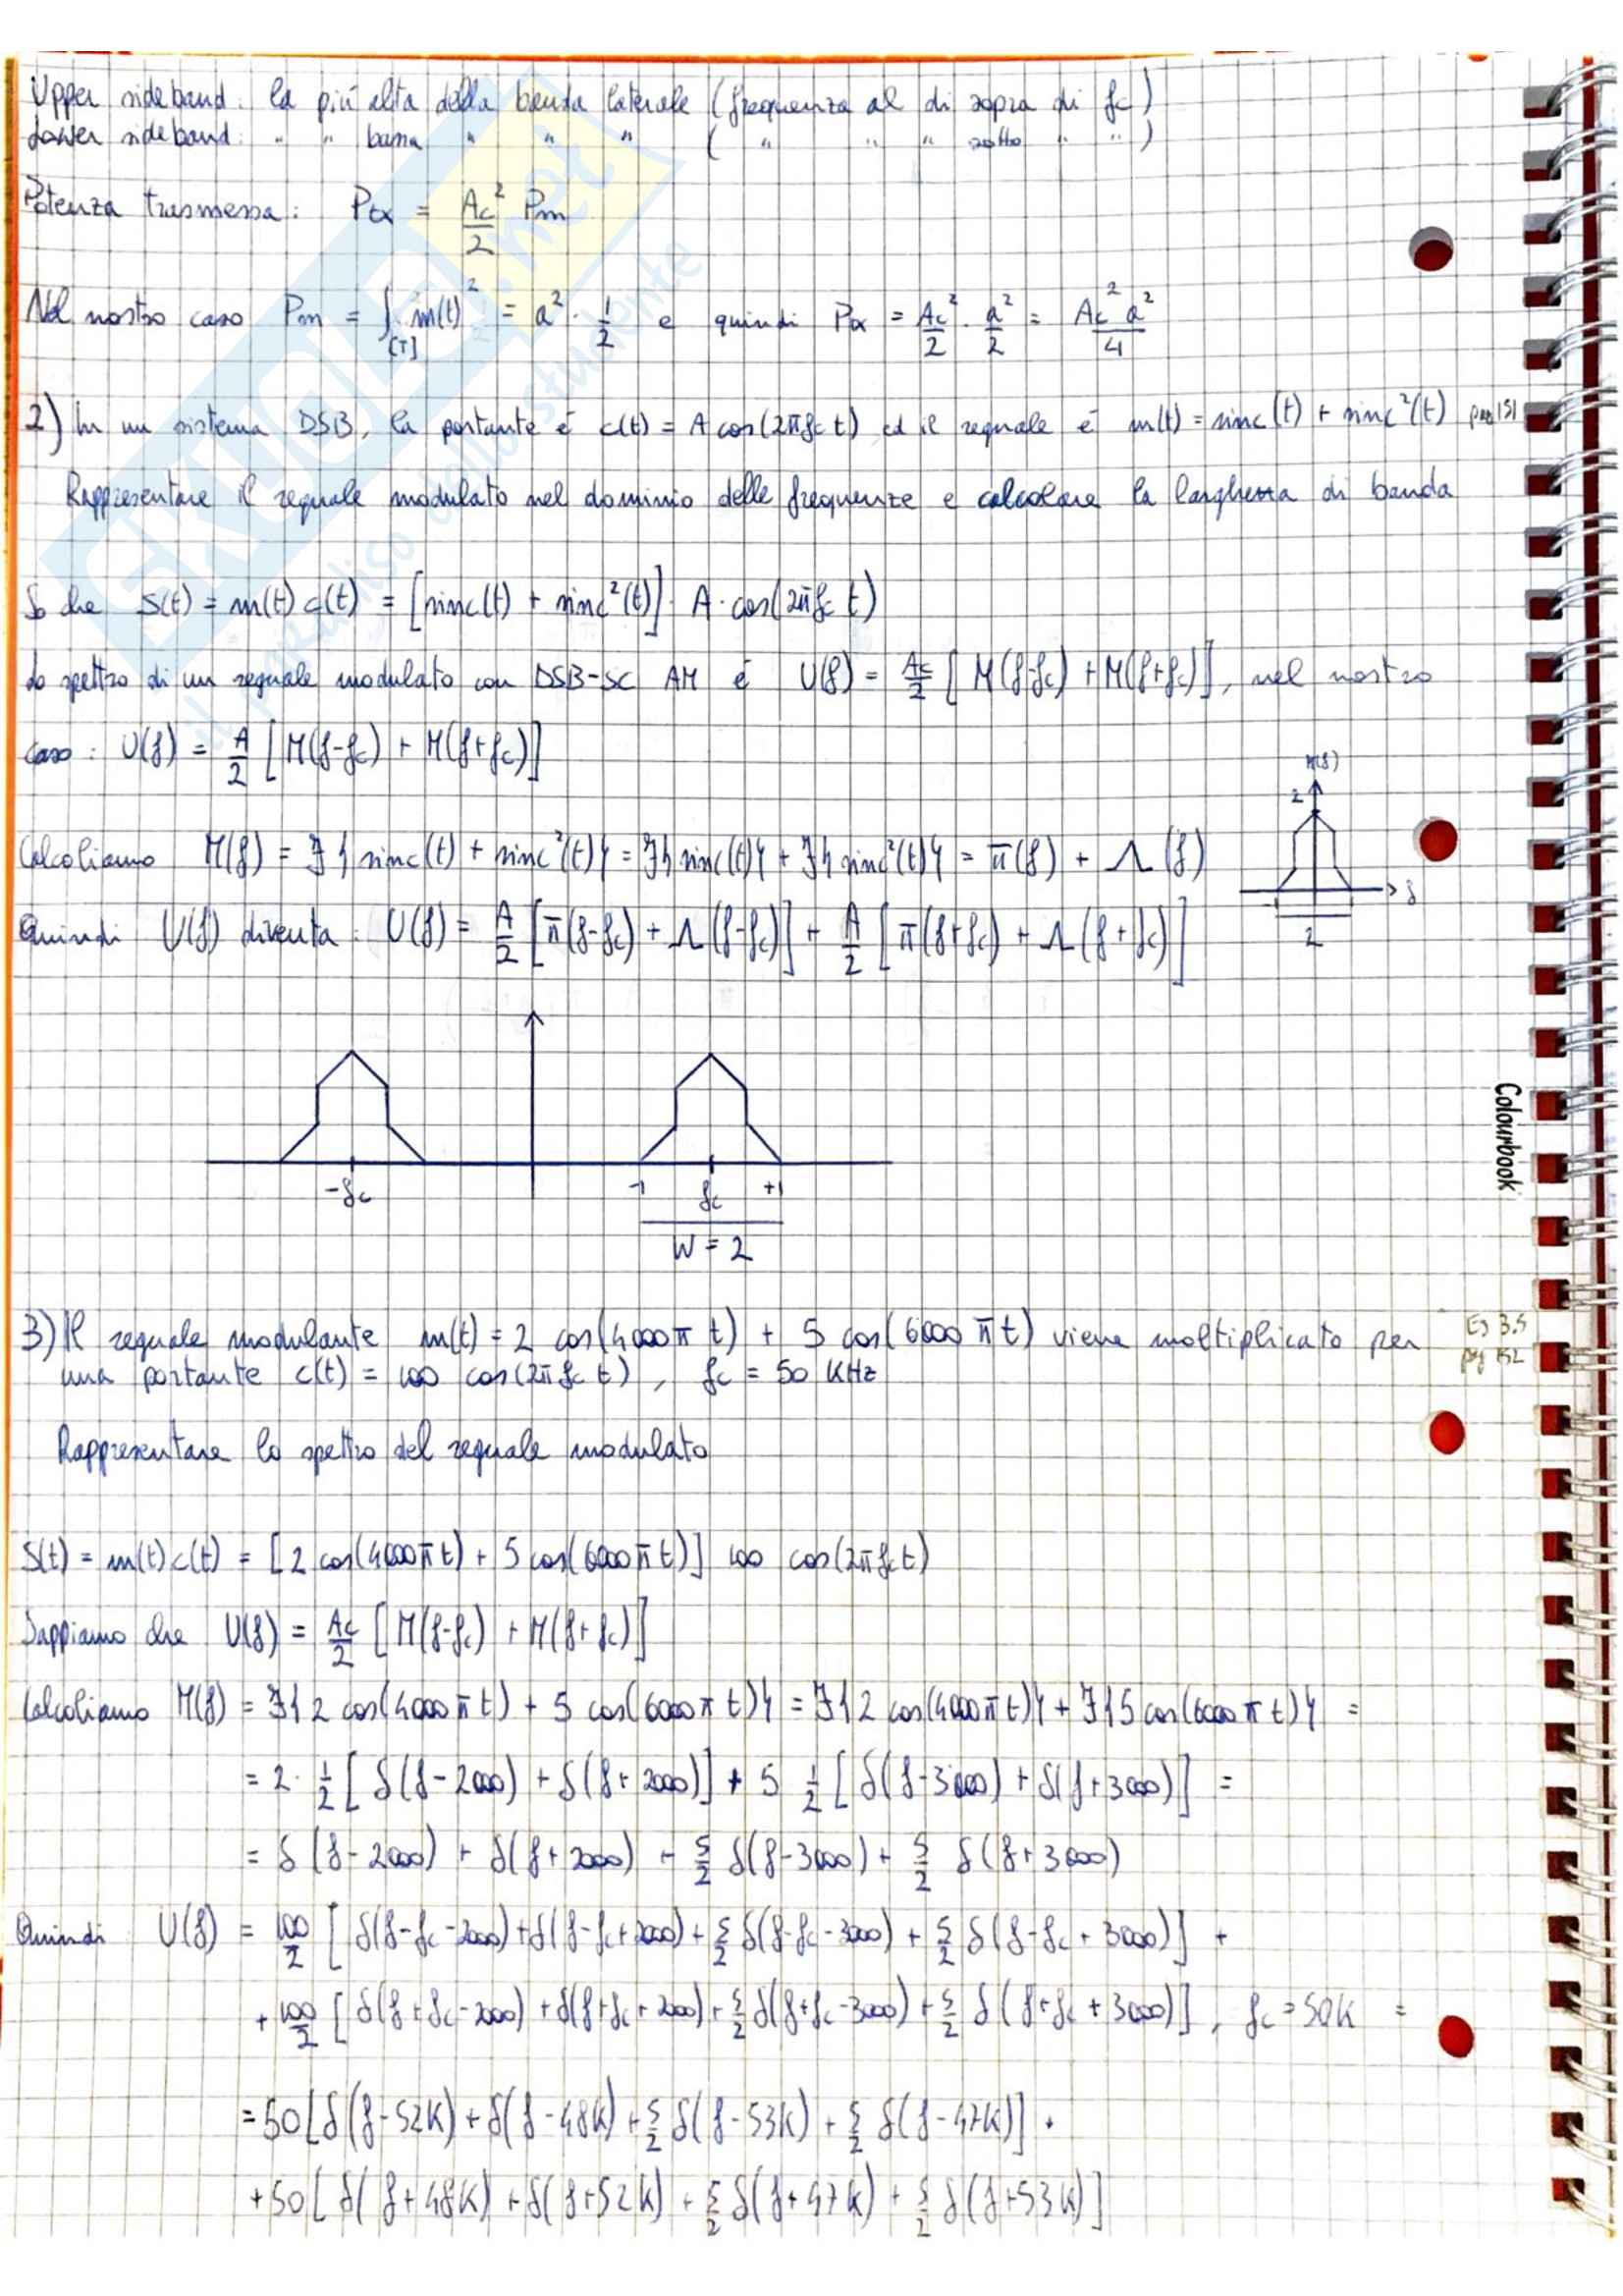 Upper sideband: la più alta della banda laterale (frequenza al di sopra di fc)
Lower sideband: " " bassa " " " ( " " " sotto " " )
Potenza trasmessa: Ptx = Ac²/2 Pm
Nel nostro caso Pm = ∫[T] m(t)² = a² · 1/2 e quindi Ptx = Ac²/2 · a²/2 = Ac² a²/4
2) In un sistema DSB, la portante è c(t) = A cos(2πfc t) ed il segnale è m(t) = sinc(t) + sinc²(t) pag 151
Rappresentare il segnale modulato nel dominio delle frequenze e calcolare la larghezza di banda
So che S(t) = m(t) c(t) = [sinc(t) + sinc²(t)] · A · cos(2πfc t)
Lo spettro di un segnale modulato con DSB-SC AM è U(f) = Ac/2 [M(f-fc) + M(f+fc)], nel nostro
caso: U(f) = A/2 [M(f-fc) + M(f+fc)]
M(f)
2
Calcoliamo M(f) = F{sinc(t) + sinc²(t)} = F{sinc(t)} + F{sinc²(t)} = π(f) + Λ(f)
f
2
Quindi U(f) diventa: U(f) = A/2 [π(f-fc) + Λ(f-fc)] + A/2 [π(f+fc) + Λ(f+fc)]
-fc -1 fc +1
W = 2
Colourbook
3) Il segnale modulante m(t) = 2 cos(4000π t) + 5 cos(6000πt) viene moltiplicato per Es 3.5
una portante c(t) = 100 cos(2πfc t), fc = 50 KHz pg 152
Rappresentare lo spettro del segnale modulato
S(t) = m(t) c(t) = [2 cos(4000πt) + 5 cos(6000πt)] 100 cos(2πfct)
Sappiamo che U(f) = Ac/2 [M(f-fc) + M(f+fc)]
Calcoliamo M(f) = F{2 cos(4000πt) + 5 cos(6000πt)} = F{2 cos(4000πt)} + F{5 cos(6000πt)} =
= 2 · 1/2 [δ(f-2000) + δ(f+2000)] + 5 1/2 [δ(f-3000) + δ(f+3000)] =
= δ(f-2000) + δ(f+2000) + 5/2 δ(f-3000) + 5/2 δ(f+3000)
Quindi U(f) = 100/2 [δ(f-fc-2000) + δ(f-fc+2000) + 5/2 δ(f-fc-3000) + 5/2 δ(f-fc+3000)] +
+ 100/2 [δ(f+fc-2000) + δ(f+fc+2000) + 5/2 δ(f+fc-3000) + 5/2 δ(f+fc+3000)], fc = 50K =
= 50[δ(f-52K) + δ(f-48K) + 5/2 δ(f-53K) + 5/2 δ(f-47K)] +
+50[δ(f+48K) + δ(f+52K) + 5/2 δ(f+47K) + 5/2 δ(f+53K)]